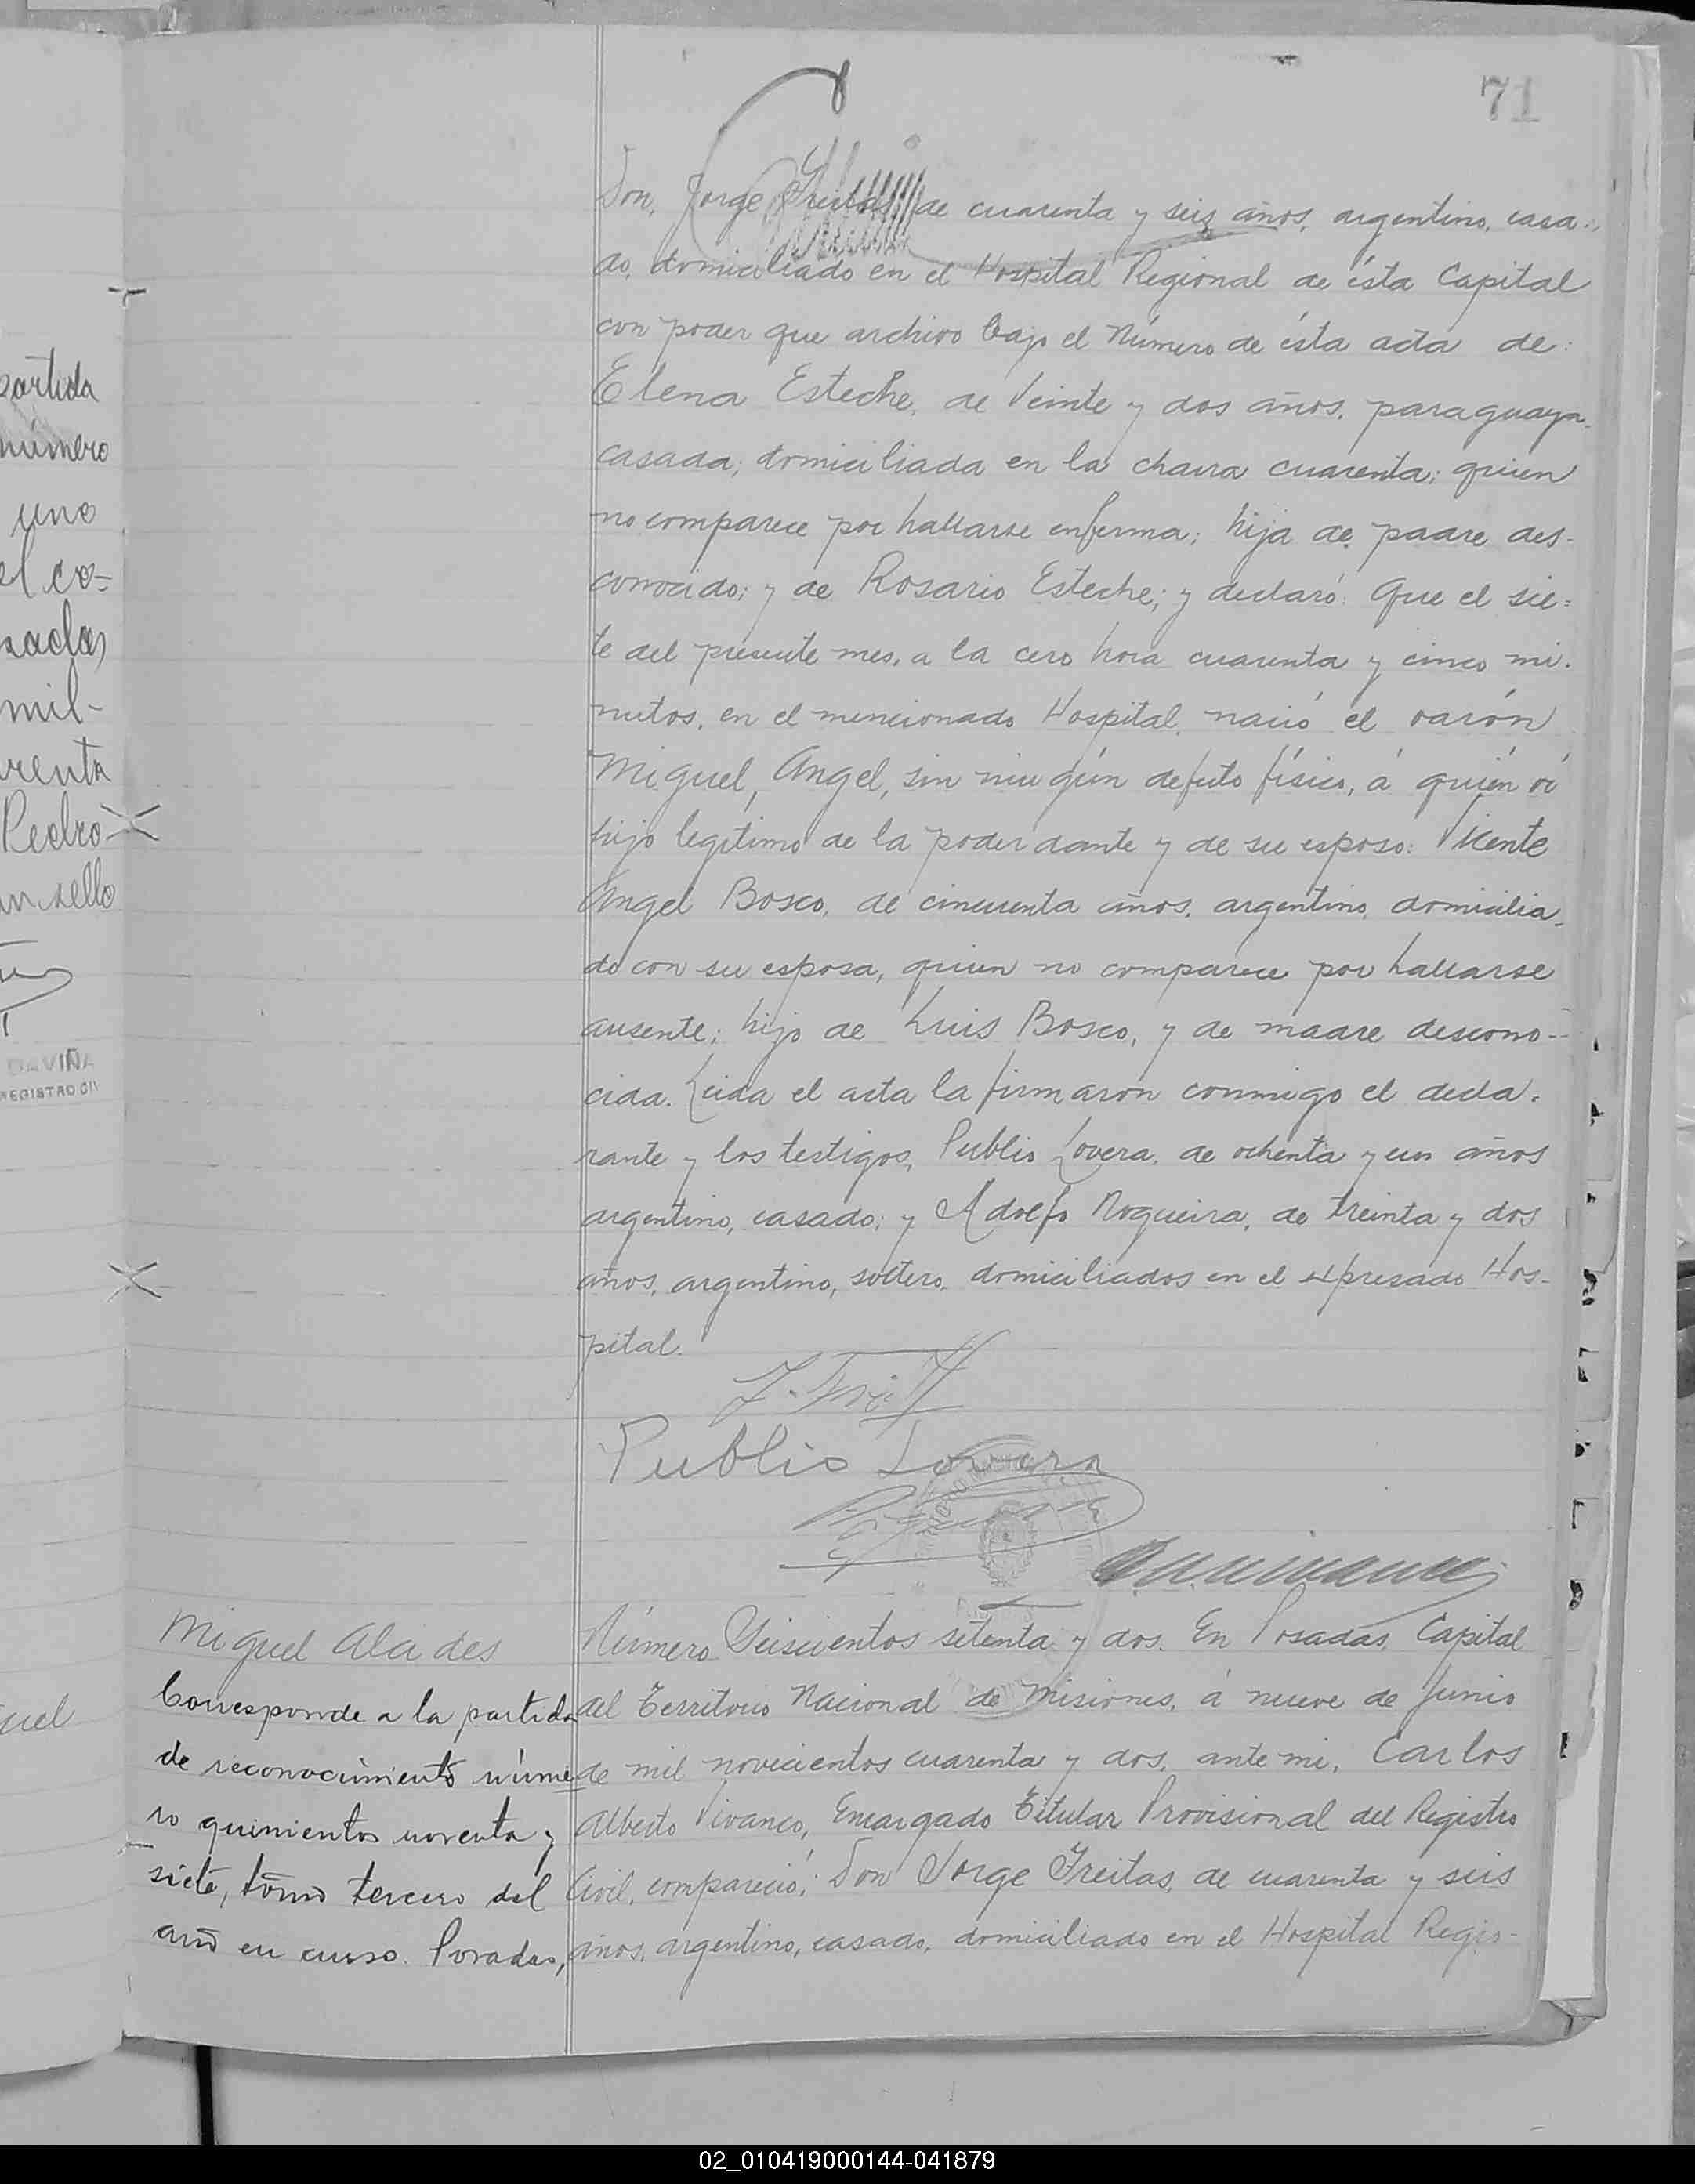 71
Don, Jorge Freitas, de cuarenta y seis años, argentino, casa-
do, domiciliado en el Hospital Regional de ésta Capital
con poder que archivo bajo el Número de ésta acta de:
Elena Esteche, de Veinte y dos años, paraguaya,
casada, domiciliada en la chacra cuarenta; quien
no comparece por hallarse enferma; hija de padre des-
conocido; y de Rosario Esteche; y declaró: Que el sie=
te del presente mes, a la cero hora cuarenta y cinco mi-
nutos, en el mencionado Hospital, nació el varón
Miguel, Angel, sin ningún defecto físico, á quién ví
hijo legítimo de la poderdante y de su esposo: Vicente
Angel Bosco, de cincuenta años, argentino, domicilia-
do con su esposa, quien no comparece por hallarse
ausente; hijo de Luis Bosco, y de madre descono-
cida. Leida el acta la firmaron conmigo el decla-
rante y los testigos, Publio Lovera, de ochenta y un años
argentino, casado; y Adolfo Nogueira, de treinta y dos
años, argentino, soltero, domiciliados en el expresado Hos-
pital.
Publio Lovera
Miguel Alcides
Corresponde a la partida
de reconocimiento núme
ro quinientos noventa y
siete, tomo tercero del
año en curso. Posadas,
Número Seiscientos setenta y dos. En Posadas, Capital
del Territorio Nacional de Misiones, á nueve de Junio
de mil novecientos cuarenta y dos, ante mi, Carlos
Alberto Vivanco, Encargado Titular Provisional del Registro
Civil, compareció: Don Jorge Freitas, de cuarenta y seis
años, argentino, casado, domiciliado en el Hospital Regio-
partida
número
uno
el co=
sadas
mil-
renta
Pedro
un sello
DAVIÑA
REGISTRO CIV
uel
02_010419000144-041879